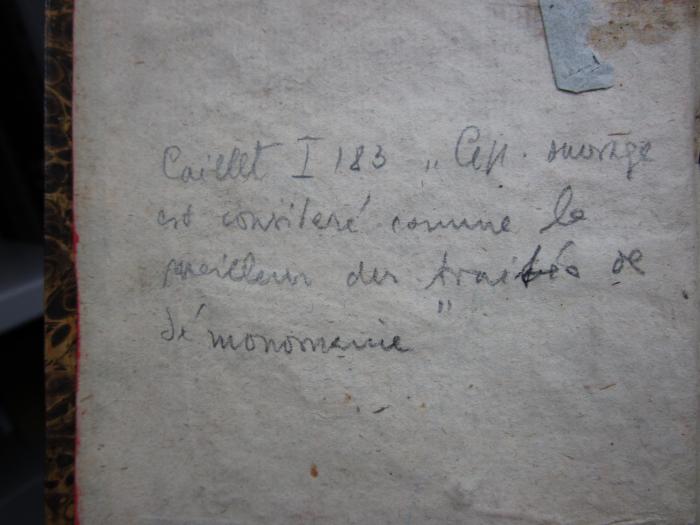 Caillet I 183 „ Cet ouvrage
est consideré comme le
meilleur des traités de
démonomanie "